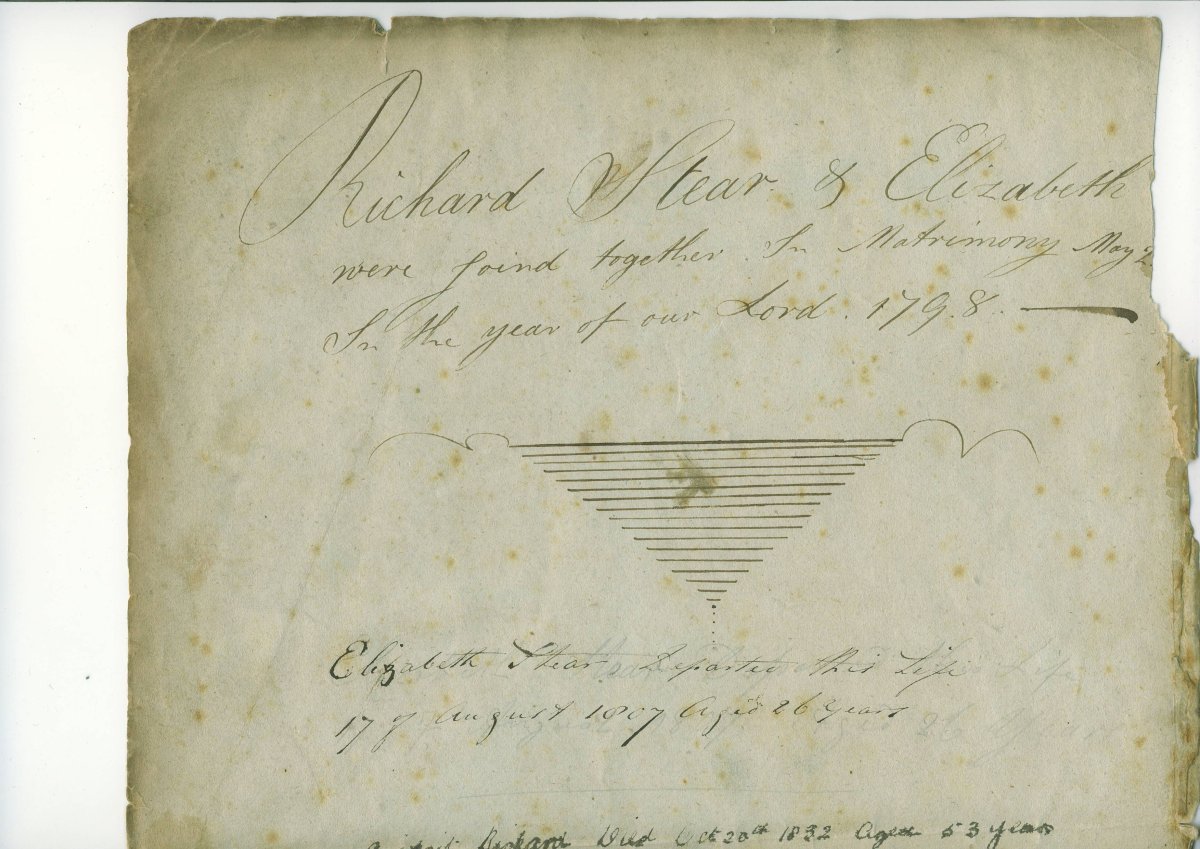 Richard Stear & Elizabeth
were Joind together In Matrimony May 2
In the year of our Lord. 1798.
Elizabeth Stear Departed this Life
17 of August 1807 Aged 26 Years
Richard Died Oct 20th 1832 Aged 53 years